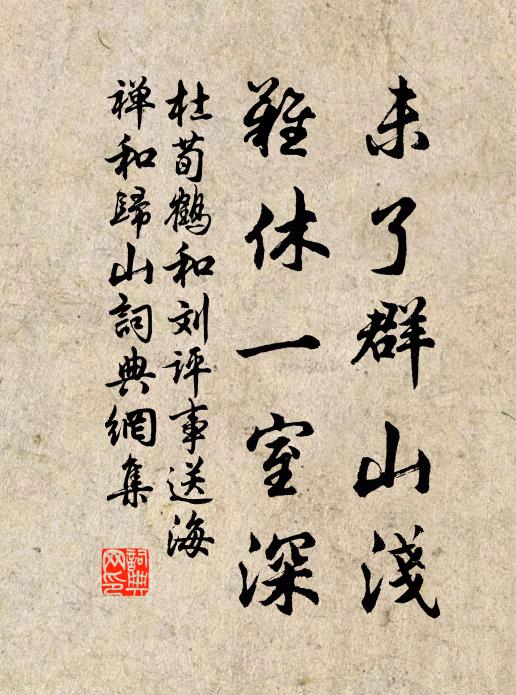 未了群山淺
難休一室深
杜荀鶴和刘評事送海
禅和歸山詞典網集
詞典
网印